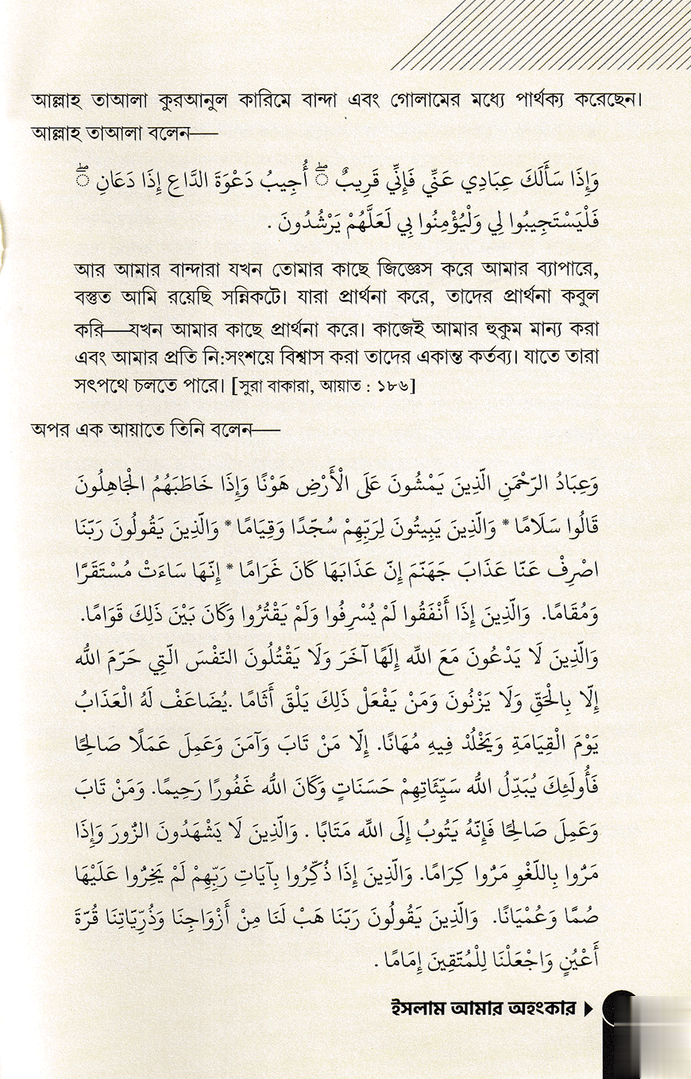 আল্লাহ তাআলা কুরআনুল কারিমে বান্দা এবং গোলামের মধ্যে পার্থক্য করেছেন।
আল্লাহ তাআলা বলেন—
وَإِذَا سَأَلَكَ عِبَادِي عَنِّي فَإِنِّي قَرِيبٌ ۖ أُجِيبُ دَعْوَةَ الدَّاعِ إِذَا دَعَانِ ۖ
فَلْيَسْتَجِيبُوا لِي وَلْيُؤْمِنُوا بِي لَعَلَّهُمْ يَرْشُدُونَ .
আর আমার বান্দারা যখন তোমার কাছে জিজ্ঞেস করে আমার ব্যাপারে,
বস্তুত আমি রয়েছি সন্নিকটে। যারা প্রার্থনা করে, তাদের প্রার্থনা কবুল
করি—যখন আমার কাছে প্রার্থনা করে। কাজেই আমার হুকুম মান্য করা
এবং আমার প্রতি নি:সংশয়ে বিশ্বাস করা তাদের একান্ত কর্তব্য। যাতে তারা
সৎপথে চলতে পারে। [সুরা বাকারা, আয়াত : ১৮৬]
অপর এক আয়াতে তিনি বলেন—
وَعِبَادُ الرَّحْمَنِ الَّذِينَ يَمْشُونَ عَلَى الْأَرْضِ هَوْنًا وَإِذَا خَاطَبَهُمُ الْجَاهِلُونَ
قَالُوا سَلَامًا * وَالَّذِينَ يَبِيتُونَ لِرَبِّهِمْ سُجَّدًا وَقِيَامًا * وَالَّذِينَ يَقُولُونَ رَبَّنَا
اصْرِفْ عَنَّا عَذَابَ جَهَنَّمَ إِنَّ عَذَابَهَا كَانَ غَرَامًا * إِنَّهَا سَاءَتْ مُسْتَقَرًّا
وَمُقَامًا. وَالَّذِينَ إِذَا أَنْفَقُوا لَمْ يُسْرِفُوا وَلَمْ يَقْتُرُوا وَكَانَ بَيْنَ ذَلِكَ قَوَامًا.
وَالَّذِينَ لَا يَدْعُونَ مَعَ اللَّهِ إِلَهًا آخَرَ وَلَا يَقْتُلُونَ النَّفْسَ الَّتِي حَرَّمَ اللَّه
إِلَّا بِالْحَقِّ وَلَا يَزْنُونَ وَمَنْ يَفْعَلْ ذَلِكَ يَلْقَ أَثَامًا .يُضَاعَفْ لَهُ الْعَذَابُ
يَوْمَ الْقِيَامَةِ وَيَخْلُدْ فِيهِ مُهَانًا. إِلَّا مَنْ تَابَ وَآمَنَ وَعَمِلَ عَمَلًا صَالِحًا
فَأُولَئِكَ يُبَدِّلُ اللَّه سَيِّئَاتِهِمْ حَسَنَاتٍ وَكَانَ اللَّه غَفُورًا رَحِيمًا. وَمَنْ تَابَ
وَعَمِلَ صَالِحًا فَإِنَّهُ يَتُوبُ إِلَى اللَّهِ مَتَابًا . وَالَّذِينَ لَا يَشْهَدُونَ الزُّورَ وَإِذَا
مَرُّوا بِاللَّغْوِ مَرُّوا كِرَامًا. وَالَّذِينَ إِذَا ذُكِّرُوا بِآيَاتِ رَبِّهِمْ لَمْ يَخِرُّوا عَلَيْهَا
صُمًّا وَعُمْيَانًا. وَالَّذِينَ يَقُولُونَ رَبَّنَا هَبْ لَنَا مِنْ أَزْوَاجِنَا وَذُرِّيَّاتِنَا قُرَّةَ
أَعْيُنٍ وَاجْعَلْنَا لِلْمُتَّقِينَ إِمَامًا .
ইসলাম আমার অহংকার